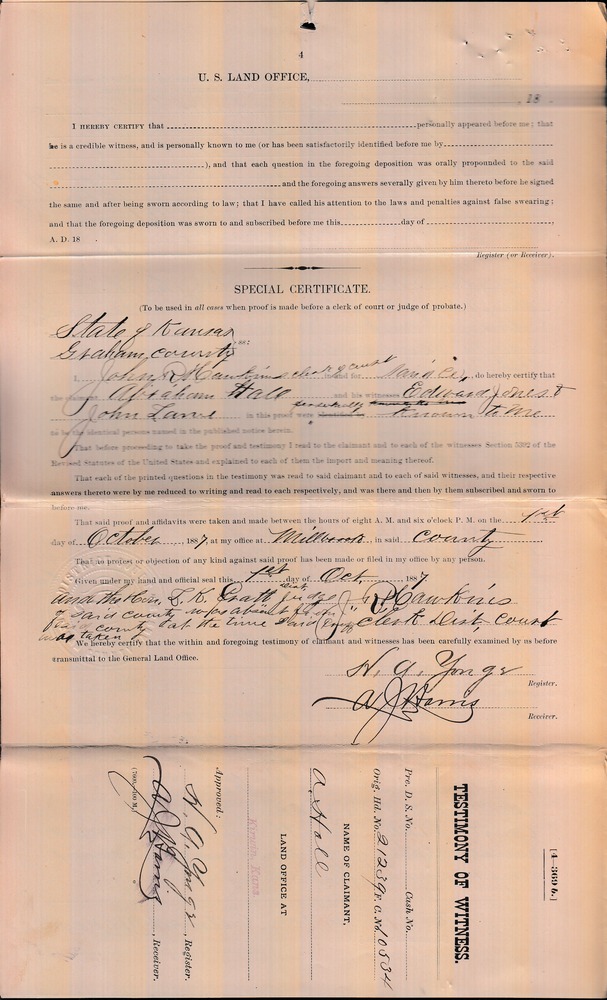 4
U. S. LAND OFFICE,
, 18 .
I HEREBY CERTIFY that personally appeared before me; that
he is a credible witness, and is personally known to me (or has been satisfactorily identified before me by
), and that each question in the foregoing deposition was orally propounded to the said
and the foregoing answers severally given by him thereto before he signed
the same and after being sworn according to law; that I have called his attention to the laws and penalties against false swearing;
and that the foregoing deposition was sworn to and subscribed before me this day of ,
A. D. 18 .
Register (or Receiver).
SPECIAL CERTIFICATE.
(To be used in all cases when proof is made before a clerk of court or judge of probate.)
State of Kansas
Graham County ss:
I, John R Hawkins clerk of court and for said Co., do hereby certify that
the claimant Abraham Hall and his witnesses Edward Jones &
John Lane in this proof were personally known to me
to be the identical persons named in the published notice herein.
That before proceeding to take the proof and testimony I read to the claimant and to each of the witnesses Section 5392 of the
Revised Statutes of the United States and explained to each of them the import and meaning thereof.
That each of the printed questions in the testimony was read to said claimant and to each of said witnesses, and their respective
answers thereto were by me reduced to writing and read to each respectively, and was there and then by them subscribed and sworn to
before me.
That said proof and affidavits were taken and made between the hours of eight A. M. and six o'clock P. M. on the 1st
day of October 1887, at my office at Millbrook, in said County
That no protest or objection of any kind against said proof has been made or filed in my office by any person.
Given under my hand and official seal this 1st day of Oct 1887
and the Hon. Dist. Judge J R Hawkins
of said county was absent from Clerk Dist Court
said county at the time said proof
was taken
We hereby certify that the within and foregoing testimony of claimant and witnesses has been carefully examined by us before
transmittal to the General Land Office.
Register.
A J Harris
Receiver.
[4—369 b.]
TESTIMONY OF WITNESS.
Pre. D. S. No. Cash No.
Orig. Hd. No. 21239 F. C. No. 10534
NAME OF CLAIMANT,
A. Hall
LAND OFFICE AT
Kirwin, Kans.
Approved:
, Register.
A J Harris
, Receiver.